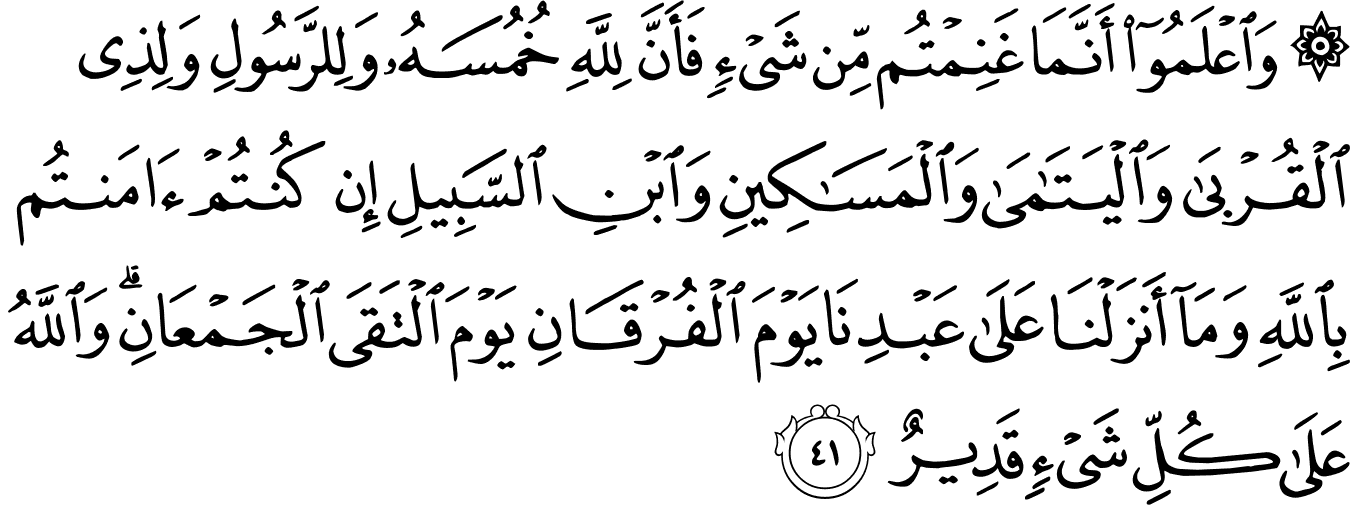 ۞ وَٱعْلَمُوٓا۟ أَنَّمَا غَنِمْتُم مِّن شَىْءٍ فَأَنَّ لِلَّهِ خُمُسَهُۥ وَلِلرَّسُولِ وَلِذِى
ٱلْقُرْبَىٰ وَٱلْيَتَـٰمَىٰ وَٱلْمَسَـٰكِينِ وَٱبْنِ ٱلسَّبِيلِ إِن كُنتُمْ ءَامَنتُم
بِٱللَّهِ وَمَآ أَنزَلْنَا عَلَىٰ عَبْدِنَا يَوْمَ ٱلْفُرْقَانِ يَوْمَ ٱلْتَقَى ٱلْجَمْعَانِ ۗ وَٱللَّهُ
عَلَىٰ كُلِّ شَىْءٍ قَدِيرٌ ٤١